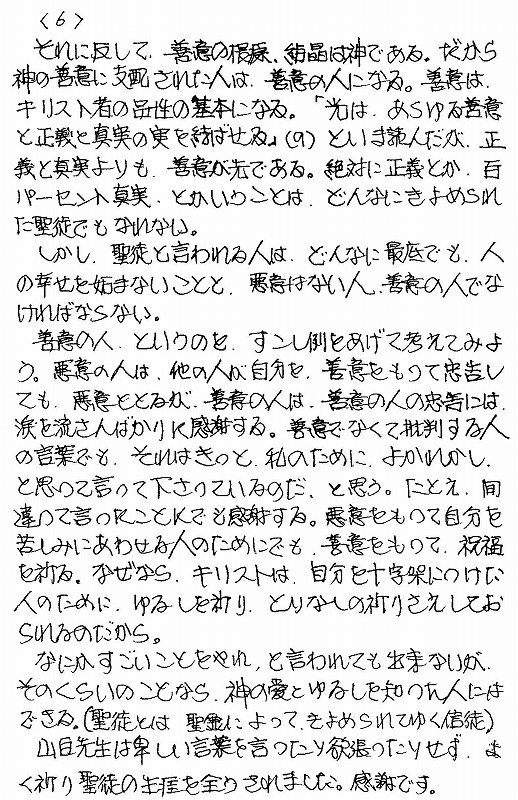 ＜6＞
それに反して、善意の根源、結晶は神である。だから
神の善意に支配された人は、善意の人になる。善意は、
キリスト者の品性の基本になる。「光は、あらゆる善意
と正義と真実の実を結ばせる」(9) といま読んだが、正
義と真実よりも、善意が先である。絶対に正義とか、百
パーセント真実、とかいうことは、どんなにきよめられ
た聖徒でもなれない。
しかし、聖徒と言われる人は、どんなに最底でも、人
の幸せを妬きないことと、悪意はない人、善意の人でな
ければならない。
善意の人、というのを、すこし例をあげて考えてみよ
う。悪意の人は、他の人が自分を、善意をもって忠告し
ても、悪意ととるが、善意の人は、善意の人の忠告には、
涙を流さんばかりに感謝する。善意でなくて批判する人
の言葉でも、それはきっと、私のために、よかれかし、
と思って言って下さっているのだ、と思う。たとえ、間
違って言ったことにでも感謝する。悪意をもって自分を
苦しみにあわせる人のためにでも、善意をもって、祝福
を祈る。なぜなら、キリストは、自分を十字架につけた
人のために、ゆるしを祈り、とりなしの祈りさえしてお
られるのだから。
なにかすごいことをやれ、と言われても出来ないが、
そのくらいのことなら、神の愛とゆるしを知った人には
できる。(聖徒とは 聖霊によって、きよめられてゆく信徒)
山目先生は卑しい言葉を言ったり欲張ったりせず、よ
く祈り聖徒の生涯を全うされました。感謝です。